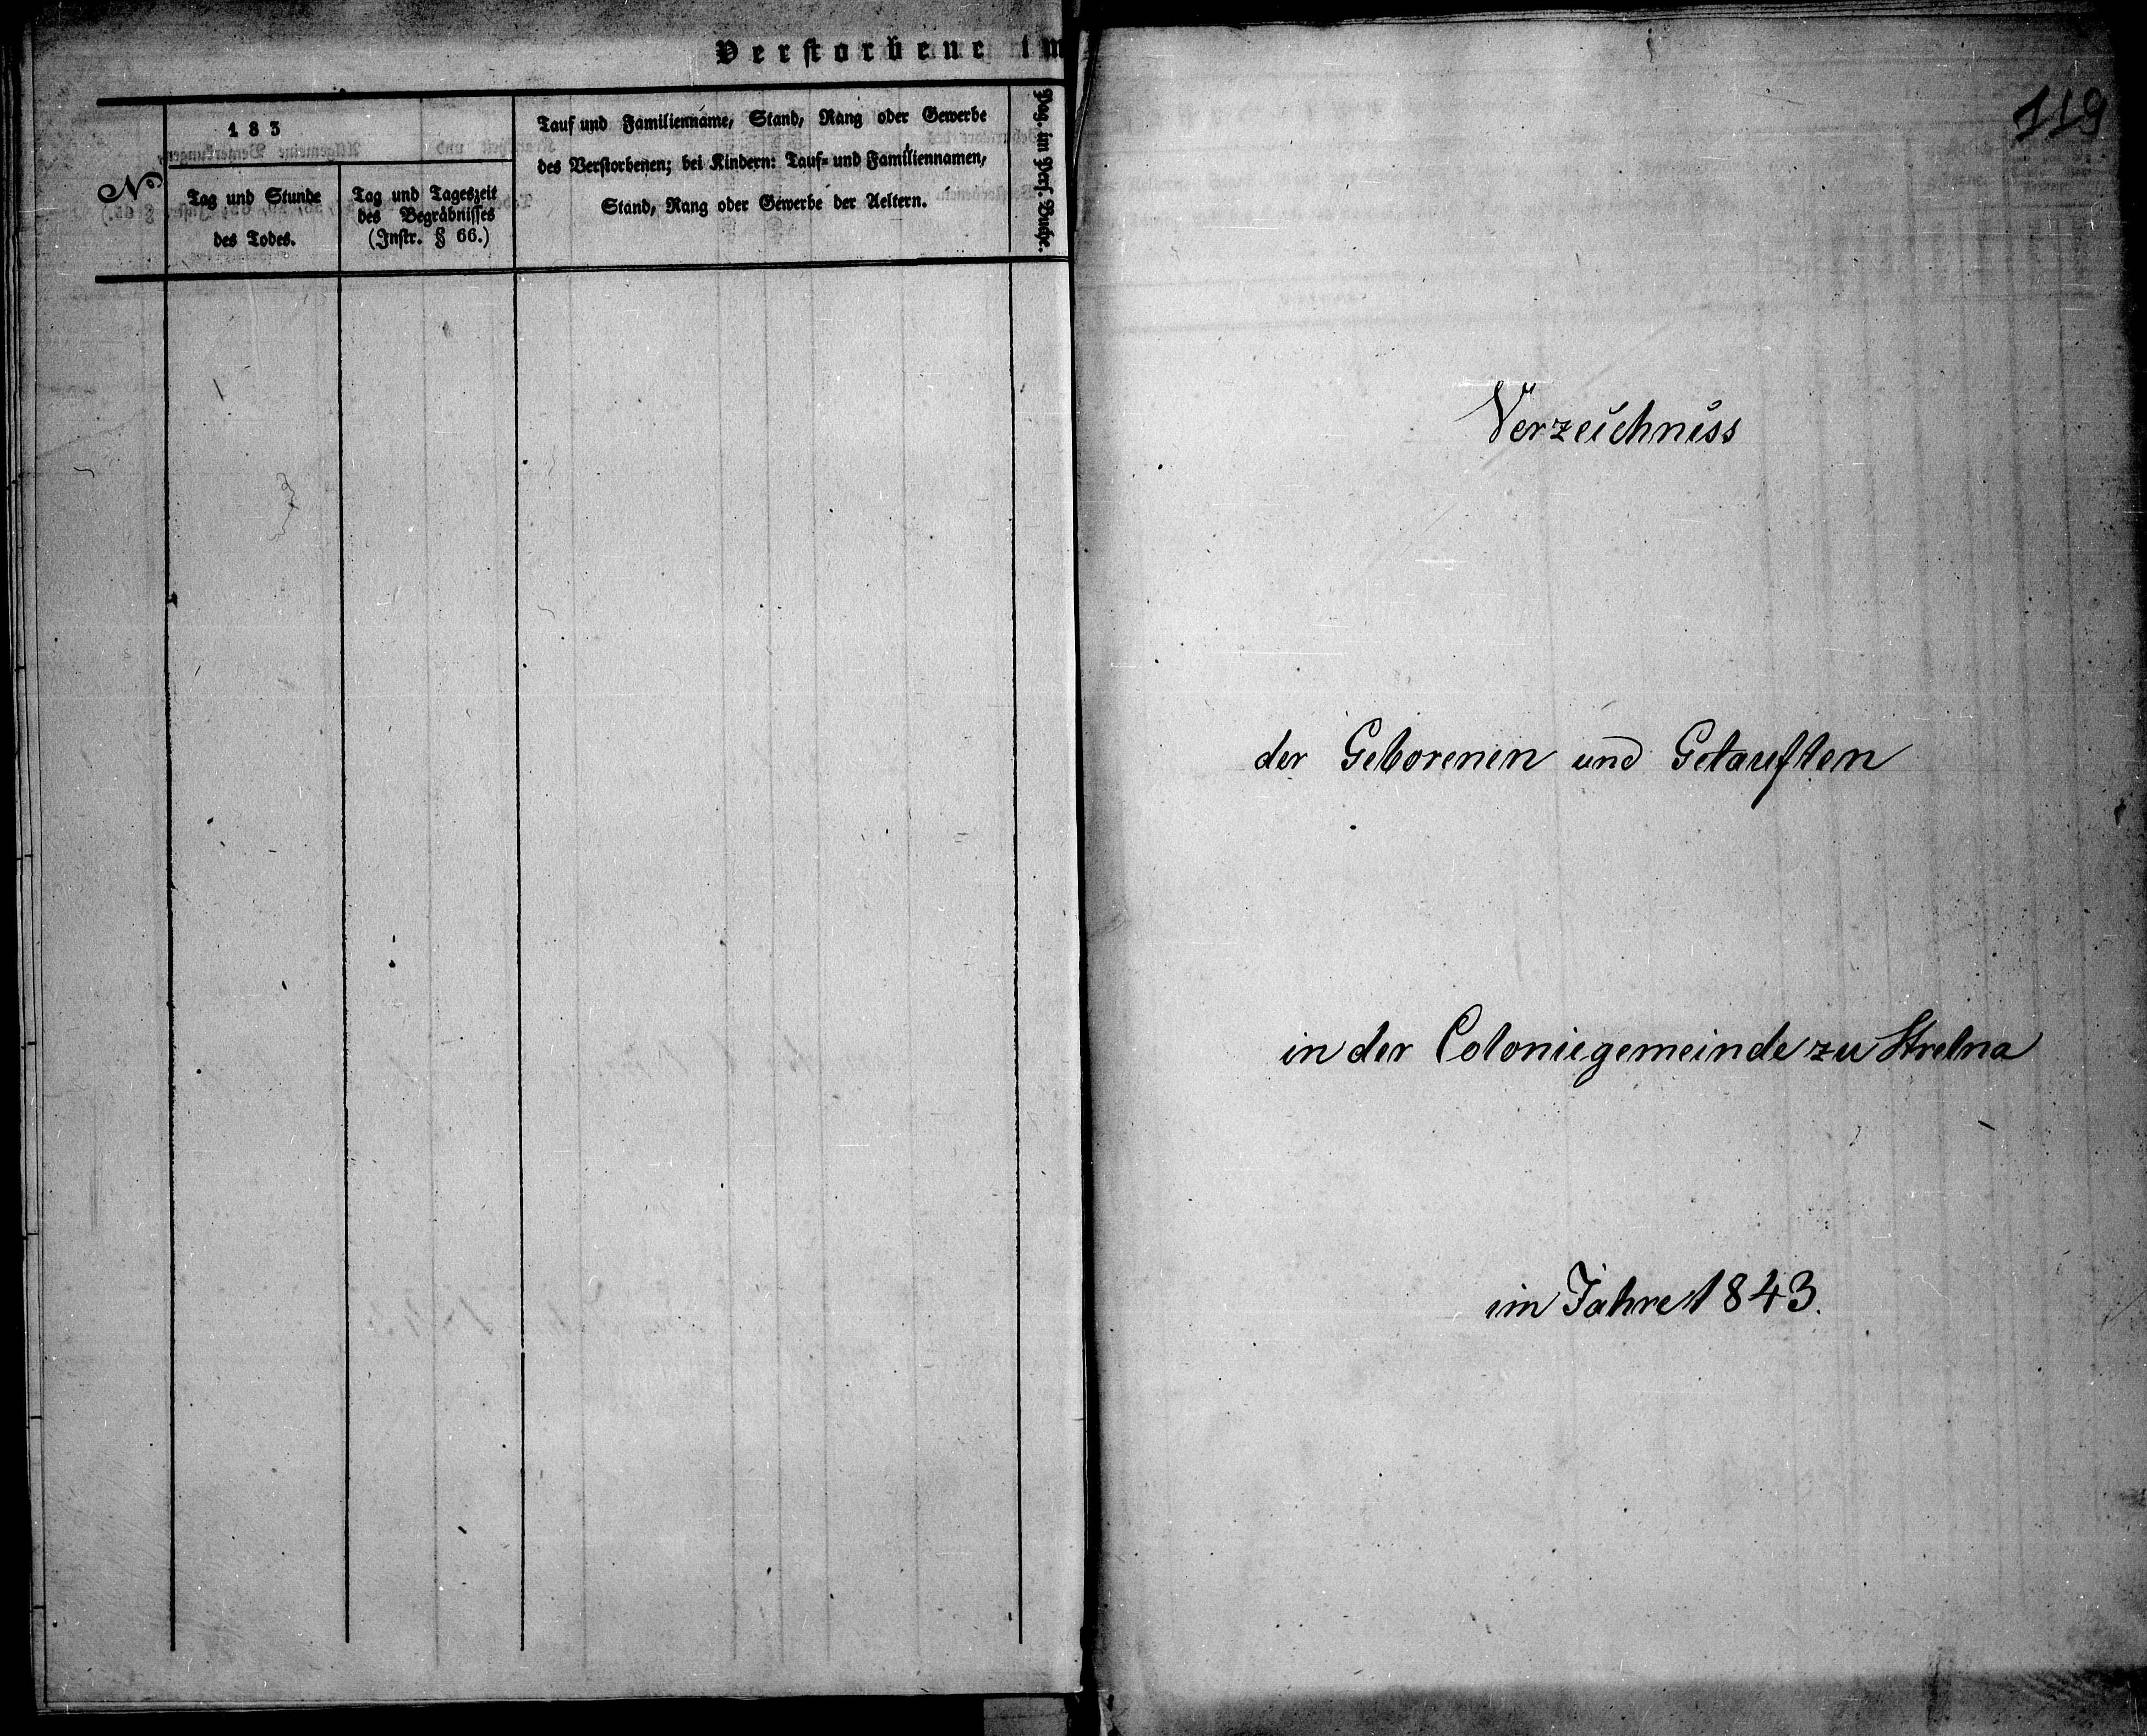 Verstorbene im
No
183
Tag und Stunde
des Todes.
Tag und Tageszeit
des Begräbnisses
(Instr. § 66.)
Tauf und Familienname, Stand, Rang oder Gewerbe
des Verstorbenen; bei Kindern: Tauf- und Familiennamen,
Stand, Rang oder Gewerbe der Aeltern.
Pag. im Pers. Buche.
119
Verzeichniss
der Geborenen und Getauften
in der Coloniegemeinde zu Strelna
im Jahre 1843.